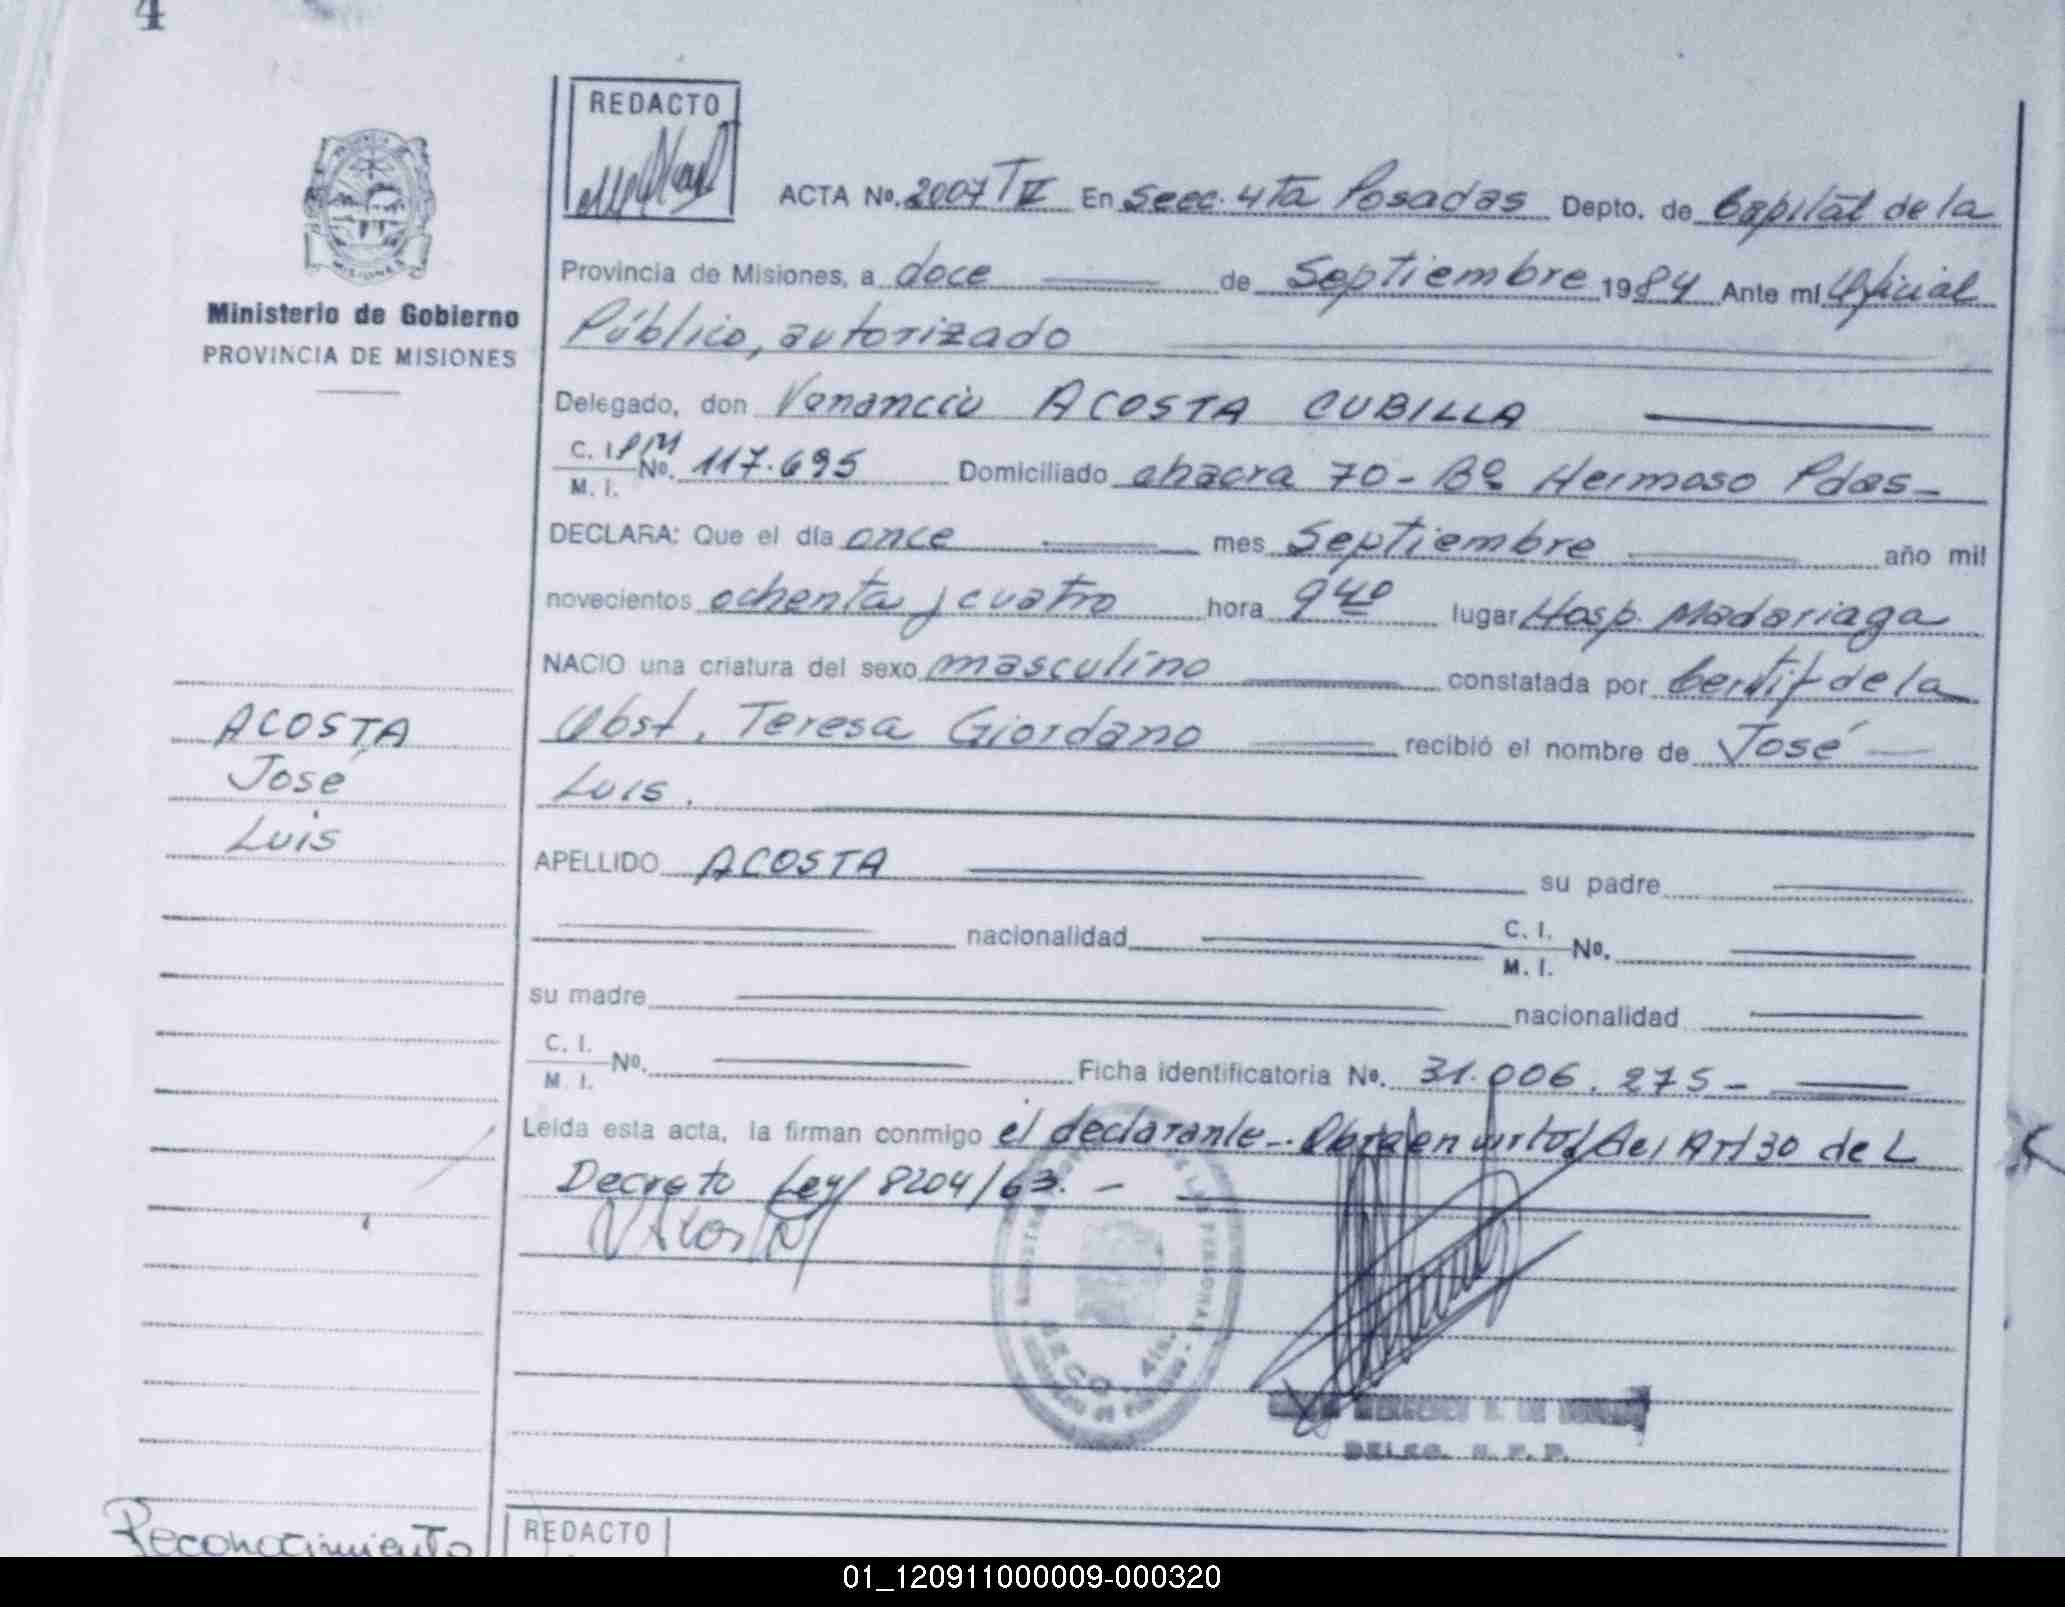 4
REDACTO
ACTA Nº. 2007 T IV En Secc. 4ta Posadas Depto. de Capital de la
Provincia de Misiones, a doce de Septiembre 1984 Ante mi Oficial
Público, autorizado
Ministerio de Gobierno
PROVINCIA DE MISIONES
Delegado, don Venancio ACOSTA CUBILLA
C. I. PM
M. I. Nº. 117.695 Domiciliado chacra 70 - Bº Hermoso Pdas -
DECLARA: Que el día once mes Septiembre año mil
novecientos ochenta y cuatro hora 9 40 lugar Hosp. Madariaga
NACIO una criatura del sexo masculino constatada por Certif de la
Obst. Teresa Giordano recibió el nombre de José
Luis.
ACOSTA
José
Luis
APELLIDO ACOSTA su padre
nacionalidad C. I.
M. I. Nº.
su madre nacionalidad
C. I.
M. I. Nº. Ficha identificatoria Nº. 31.006.275 -
Leída esta acta, la firman conmigo el declarante -. en virtud del Art 30 de L
Decreto Ley 8204/63. -
DELEG. R. P. P.
Reconocimiento
REDACTO
01_120911000009-000320